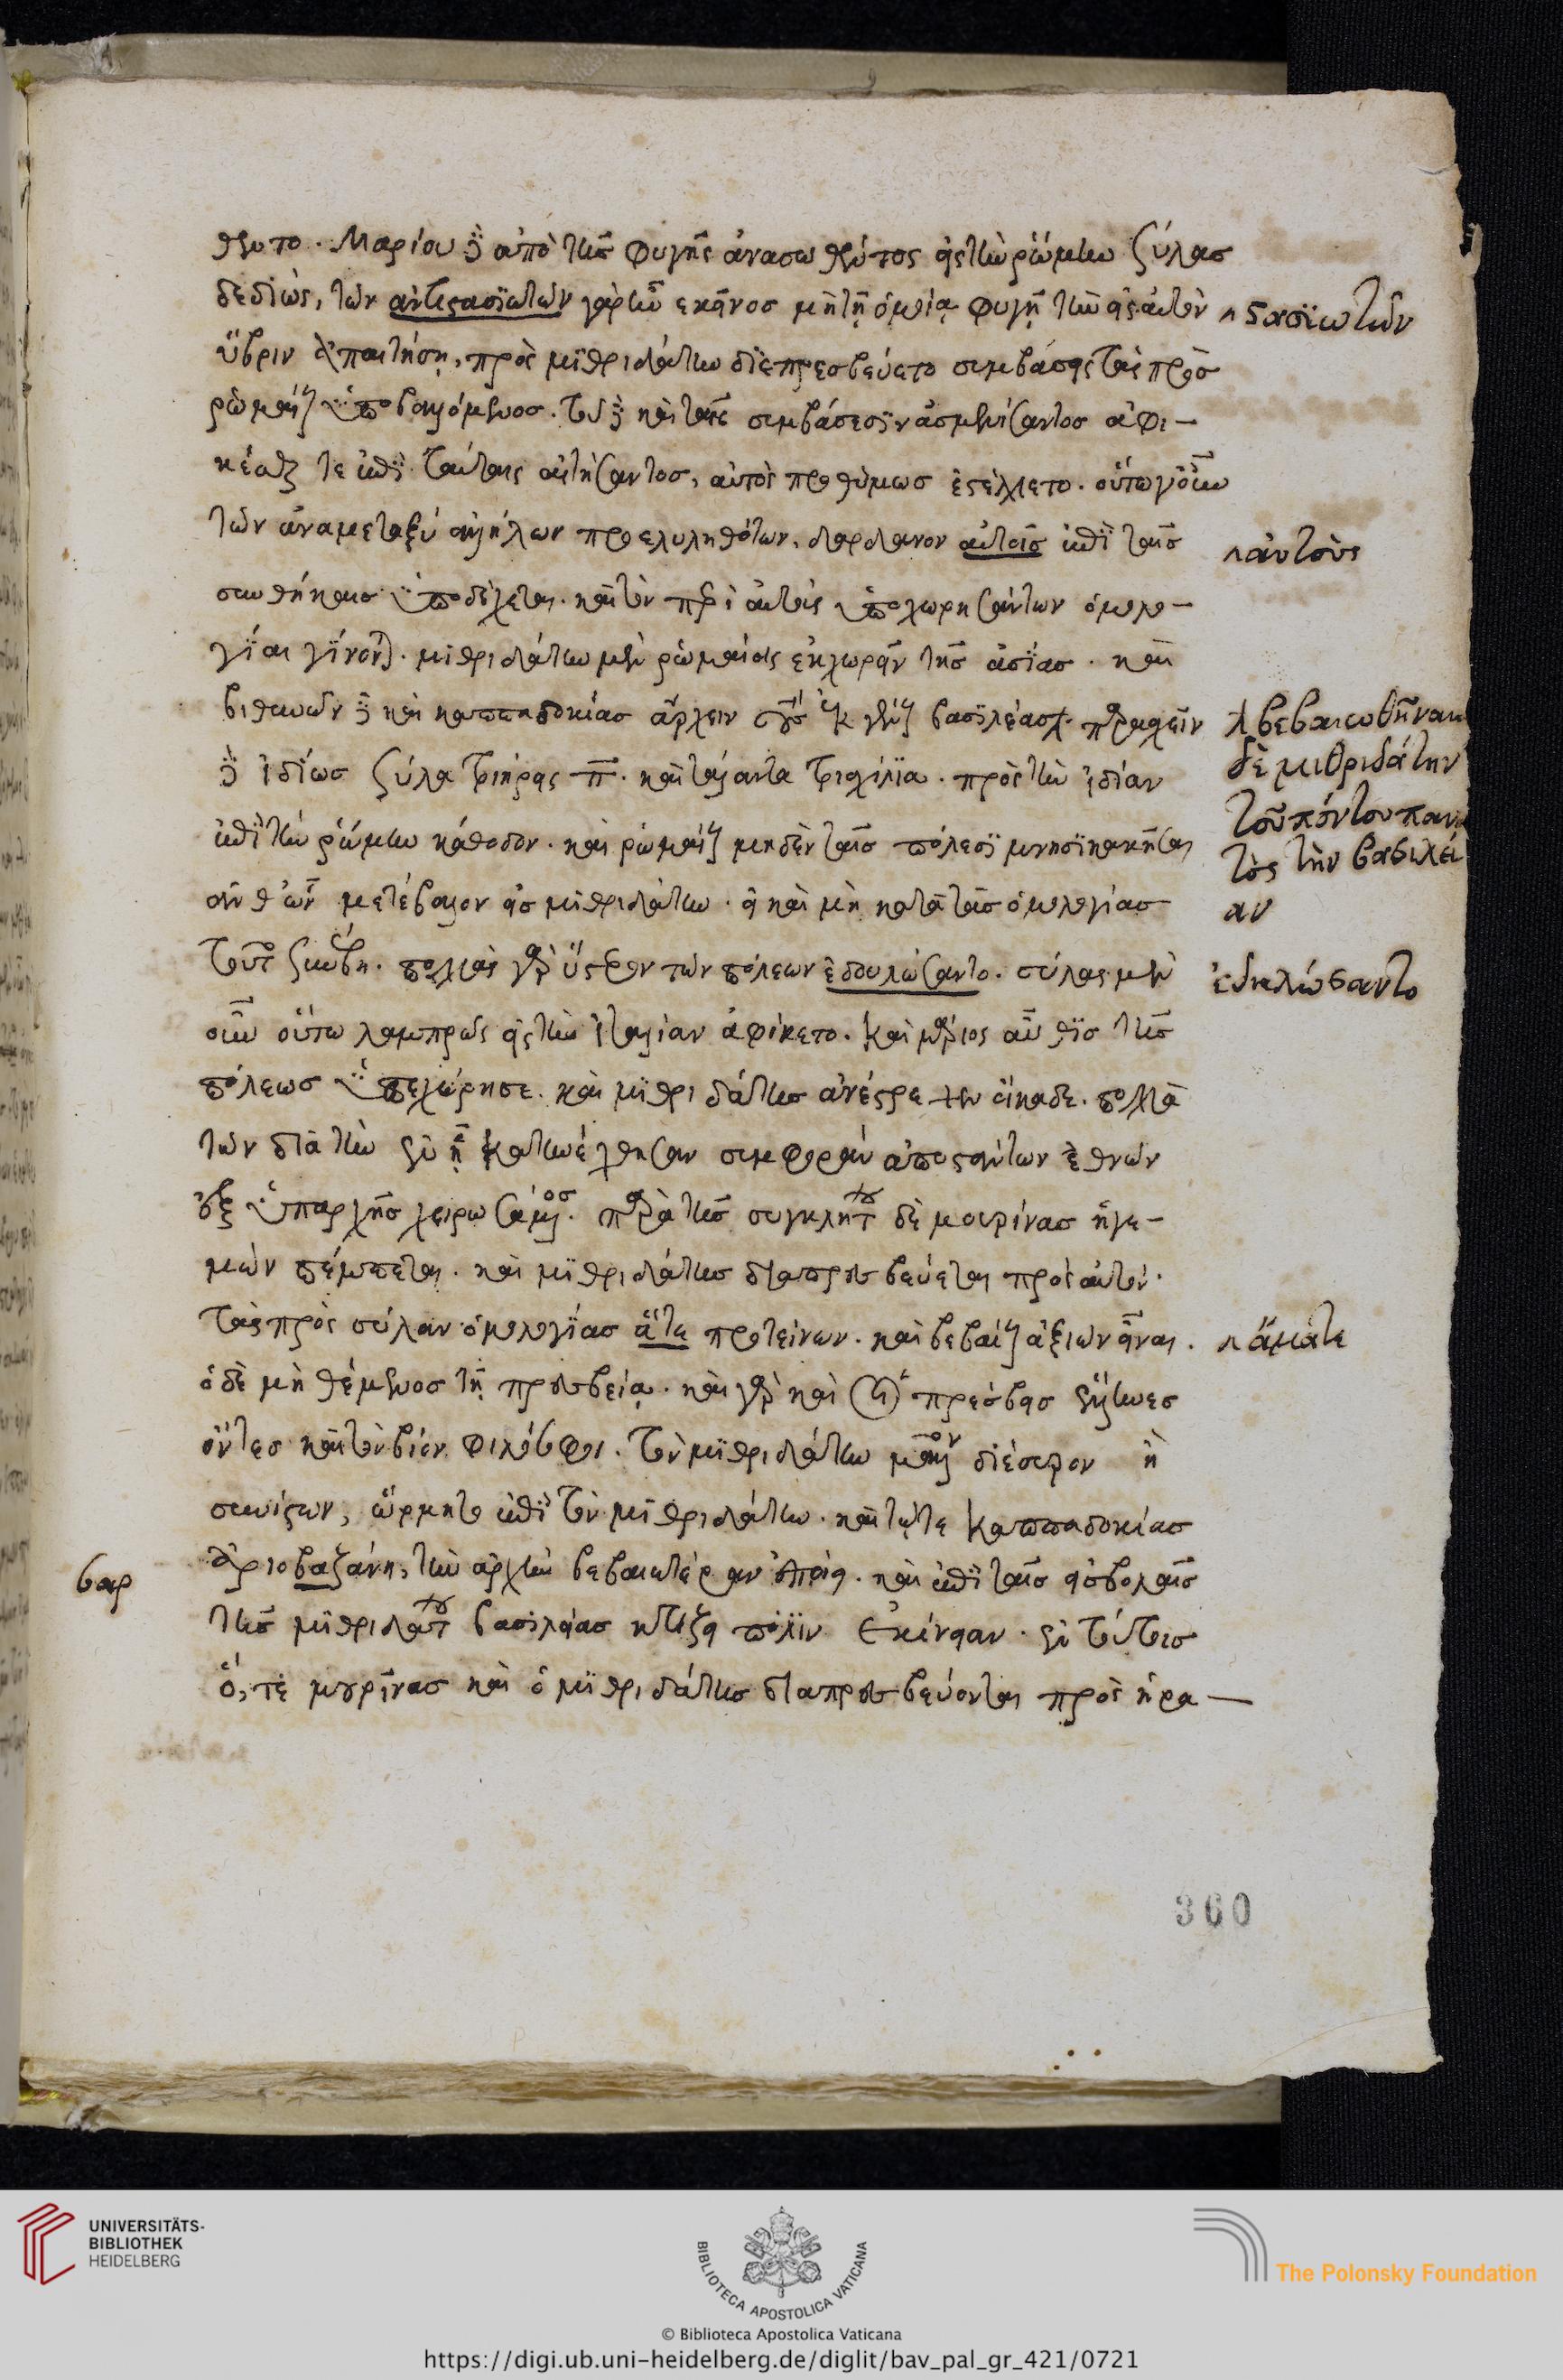 θεντο. Μαρίου δὲ ἀπὸ τῆς φυγῆς ἀνασωθέντος εἰς τὴν ῥώμην ζύλας
δεδιὼς, τῶν ἀντιστασϊωτῶν γὰρ ἦν ἐκεῖνος μὴ τῇ ὁμοίᾳ φυγῇ τὴν εἰς αὐτὸν
ὕβριν ἀπαιτήσῃ, πρὸς μιθριδάτην διεπρεσβεύετο συμβάσεις τὰς πρὸς
ῥωμαίους ὑποβαλλόμενος. τοῦ δὲ καὶ ταῖς συμβάσεσϊν ἀσμενίσαντος ἀφι-
κέσθαι τε ἐπὶ ταύταις αἰτήσαντος, αὐτὸς προθύμως ἐστέλλετο. οὕτω γοῦν
τῶν ἀναμεταξὺ ἀλλήλων προεληλυθότων, δάρδανον αὐτοῖς ἐπὶ ταῖς
συνθήκαις ὑποδέχεται. καὶ τῶν περὶ αὐτοὺς ὑποχωρησάντων ὁμολο-
γίαι γίνονται. μιθριδάτην μὲν ῥωμαίοις ἐκχωρεῖν τῆς ἀσίας. καὶ
βιθυνῶν δὲ καὶ καππαδοκίας ἄρχειν τοὺς ἐκ γένους βασιλέας. παρασχεῖν
δὲ ἰδίως ζύλα τριήρεις π. καὶ τάλαντα τρισχίλια. πρὸς τὴν ἰδίαν
ἐπὶ τὴν ῥώμην κάθοδον. καὶ ῥωμαίους μηδὲν ταῖς πόλεσϊ μνησικακῆσαι
ἀνθ' ὧν μετέβαλλον εἰς μιθριδάτην. εἰ καὶ μὴ κατὰ τὰς ὁμολογίας
τοῦτο συνέβη. πολλὰς γὰρ ὕστερον τῶν πόλεων ἐδουλώσαντο. σύλας μὲν
οὖν οὕτω λαμπρῶς εἰς τὴν ἰταλίαν ἀφίκετο. καὶ μάριος αὖθις τῆς
πόλεως ὑπεχώρησε. καὶ μιθριδάτης ἀνέστρεψεν οἴκαδε. πολλὰ
τῶν διὰ τὴν
ἐξ ὑπαρχῆς χειρωσάμενος. παρὰ τῆς συγκλήτου δὲ μουρίνας ἡγε-
μὼν πέμπεται. καὶ μιθριδάτης διαπρεσβεύεται πρὸς αὐτόν.
τὰς πρὸς σύλαν ὁμολογίας ἅτε προτείνων. καὶ βεβαίους ἀξιῶν εἶναι.
ὁ δὲ μὴ θέμενος τῇ πρεσβείᾳ. καὶ γὰρ καὶ οἱ πρέσβεις ἕλληνες
ὄντες καὶ τὸν βίον φιλόσοφοι. τὸν μιθριδάτην μᾶλλον διέσυρον ἢ
συνίστων, ὥρμητο ἐπὶ τὸν μιθριδάτην. καὶ τότε καππαδοκίας
ἀριοβαζάνῃ, τὴν ἀρχὴν βεβαιοτέραν ποιεῖ. καὶ ἐπὶ ταῖς εἰσβολαῖς
τῆς μιθριδάτου βασιλείας κτίζει πόλιν ἐκίνειαν. ἐν τούτοις
ὅ, τε μουρίνας καὶ ὁ μιθριδάτης διαπρεσβεύονται πρὸς ἡρα-
στασϊωτῶν
αὐτοὺς
βεβαιωθῆναι
δὲ μιθριδάτην
τοῦ πόντου παν
τὸς τὴν βασιλεί
αν
ἐδηλώσαντο
ἅμα τε
βαρ
360
UNIVERSITÄTS-
BIBLIOTHEK
HEIDELBERG
BIBLIOTECA APOSTOLICA VATICANA
© Biblioteca Apostolica Vaticana
The Polonsky Foundation
https://digi.ub.uni-heidelberg.de/diglit/bav_pal_gr_421/0721